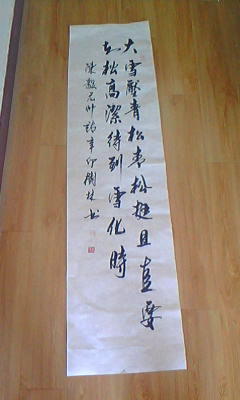 大雪壓青松青松挺且直要
知松高潔待到雪化時
陳毅元帅詩辛卯樹林书